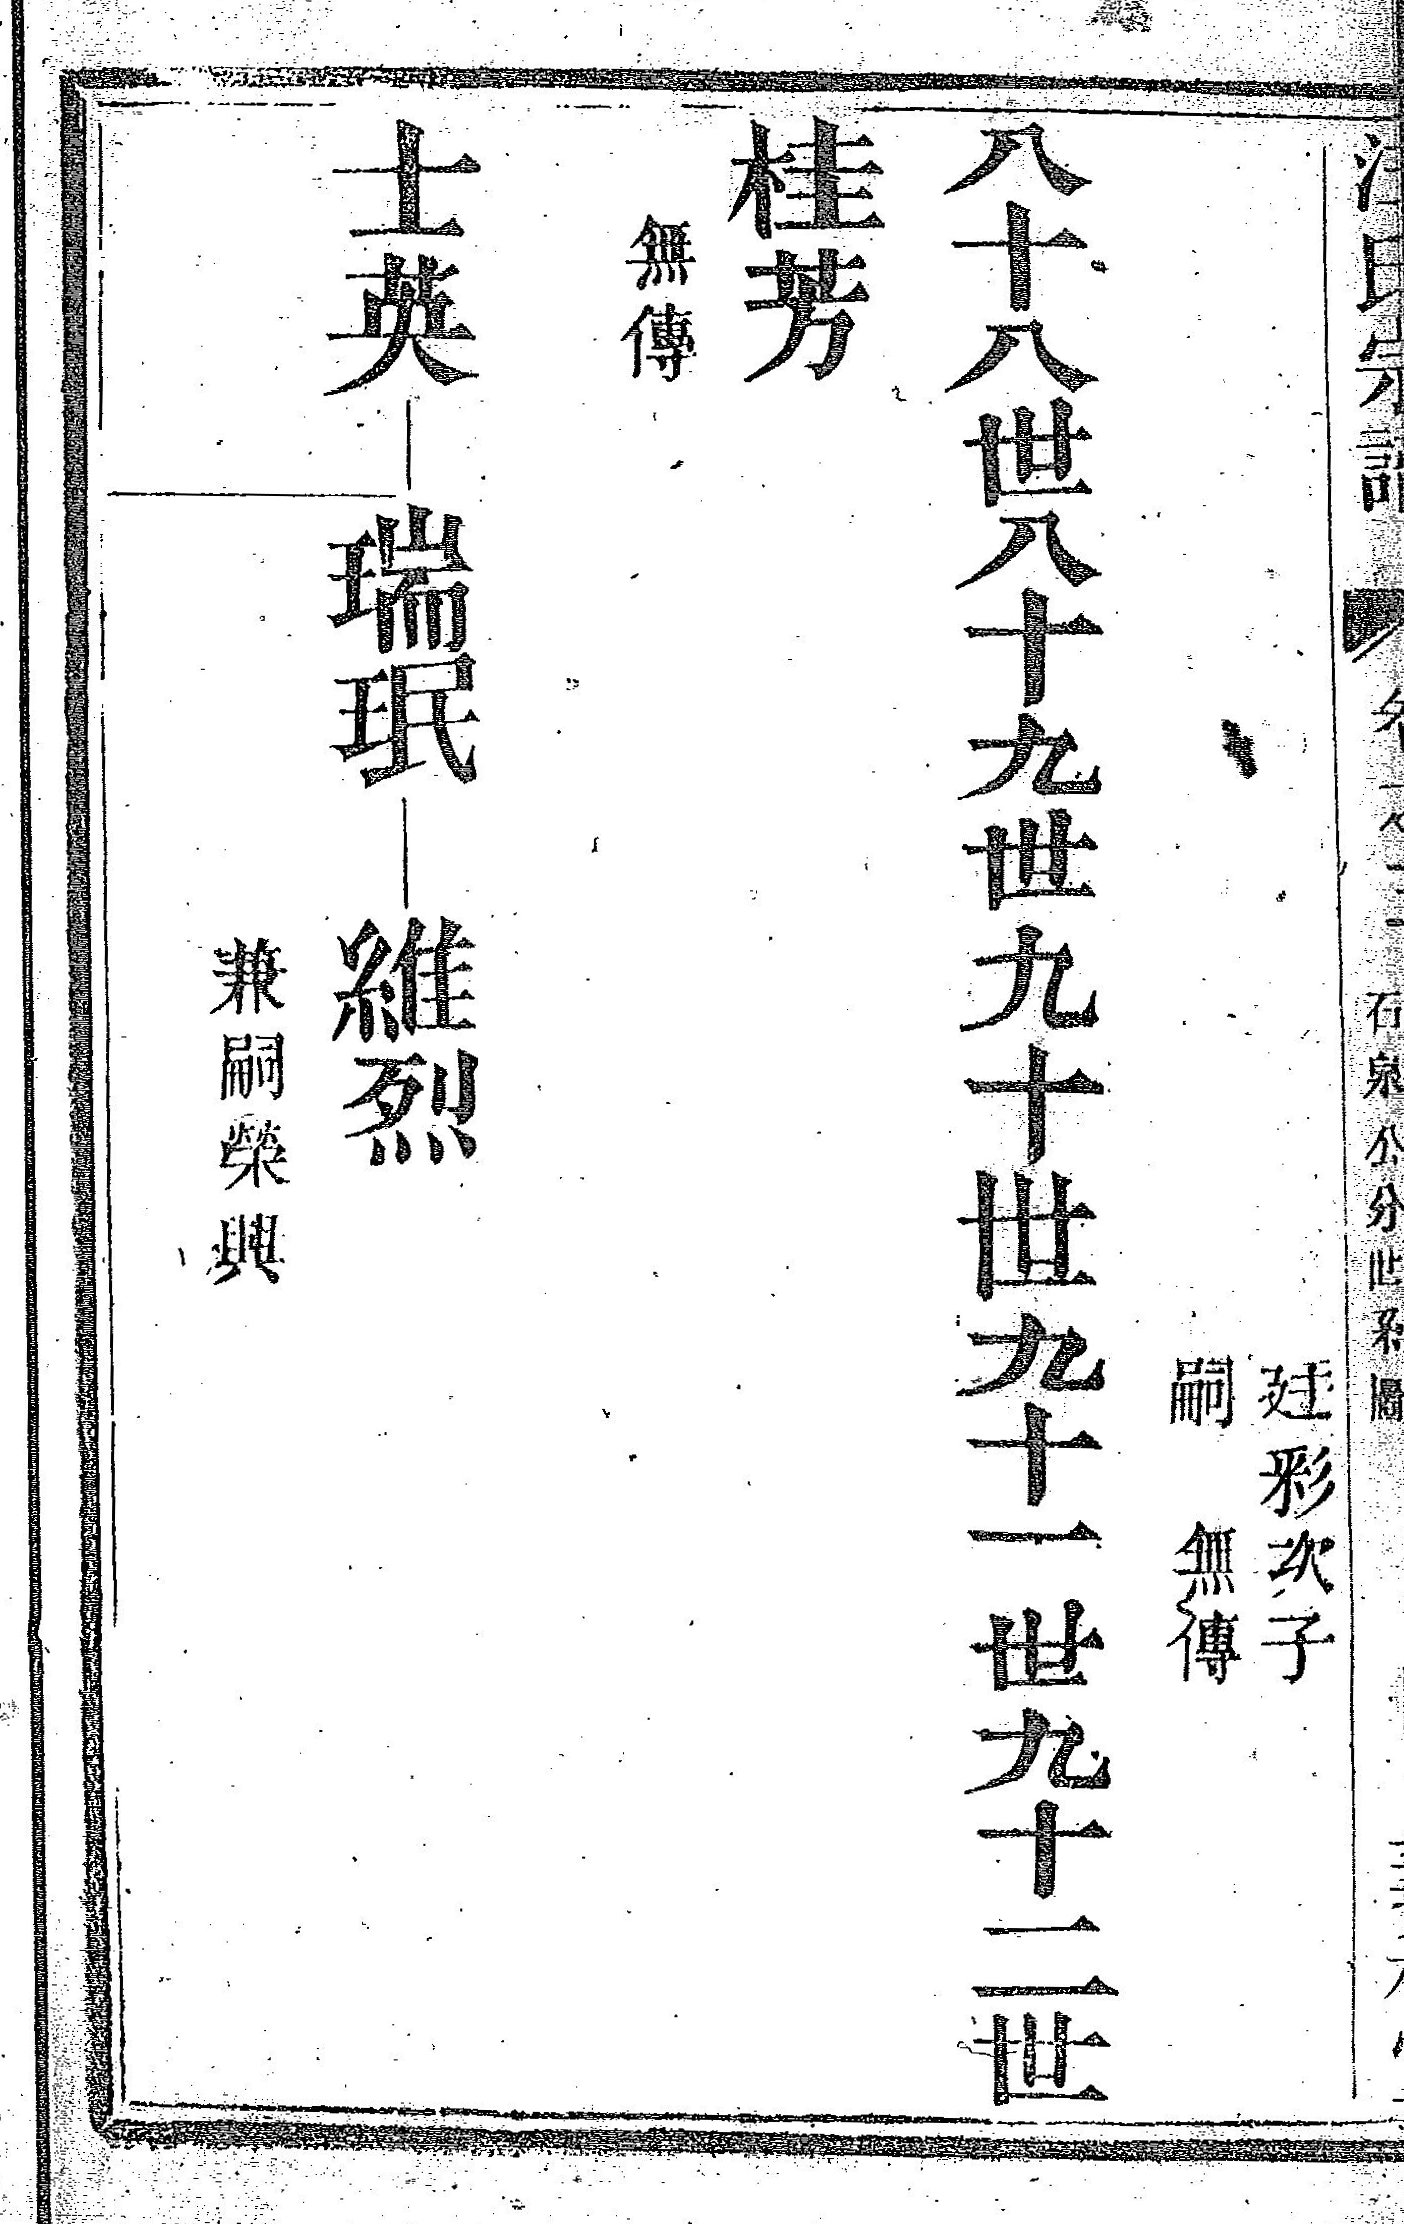 石泉公分世系圖
廷彩次子
嗣　無傳
八十八世八十九世九十世九十一世九十二世
桂芳
無傳
士英
瑞珉
維烈
兼嗣榮興